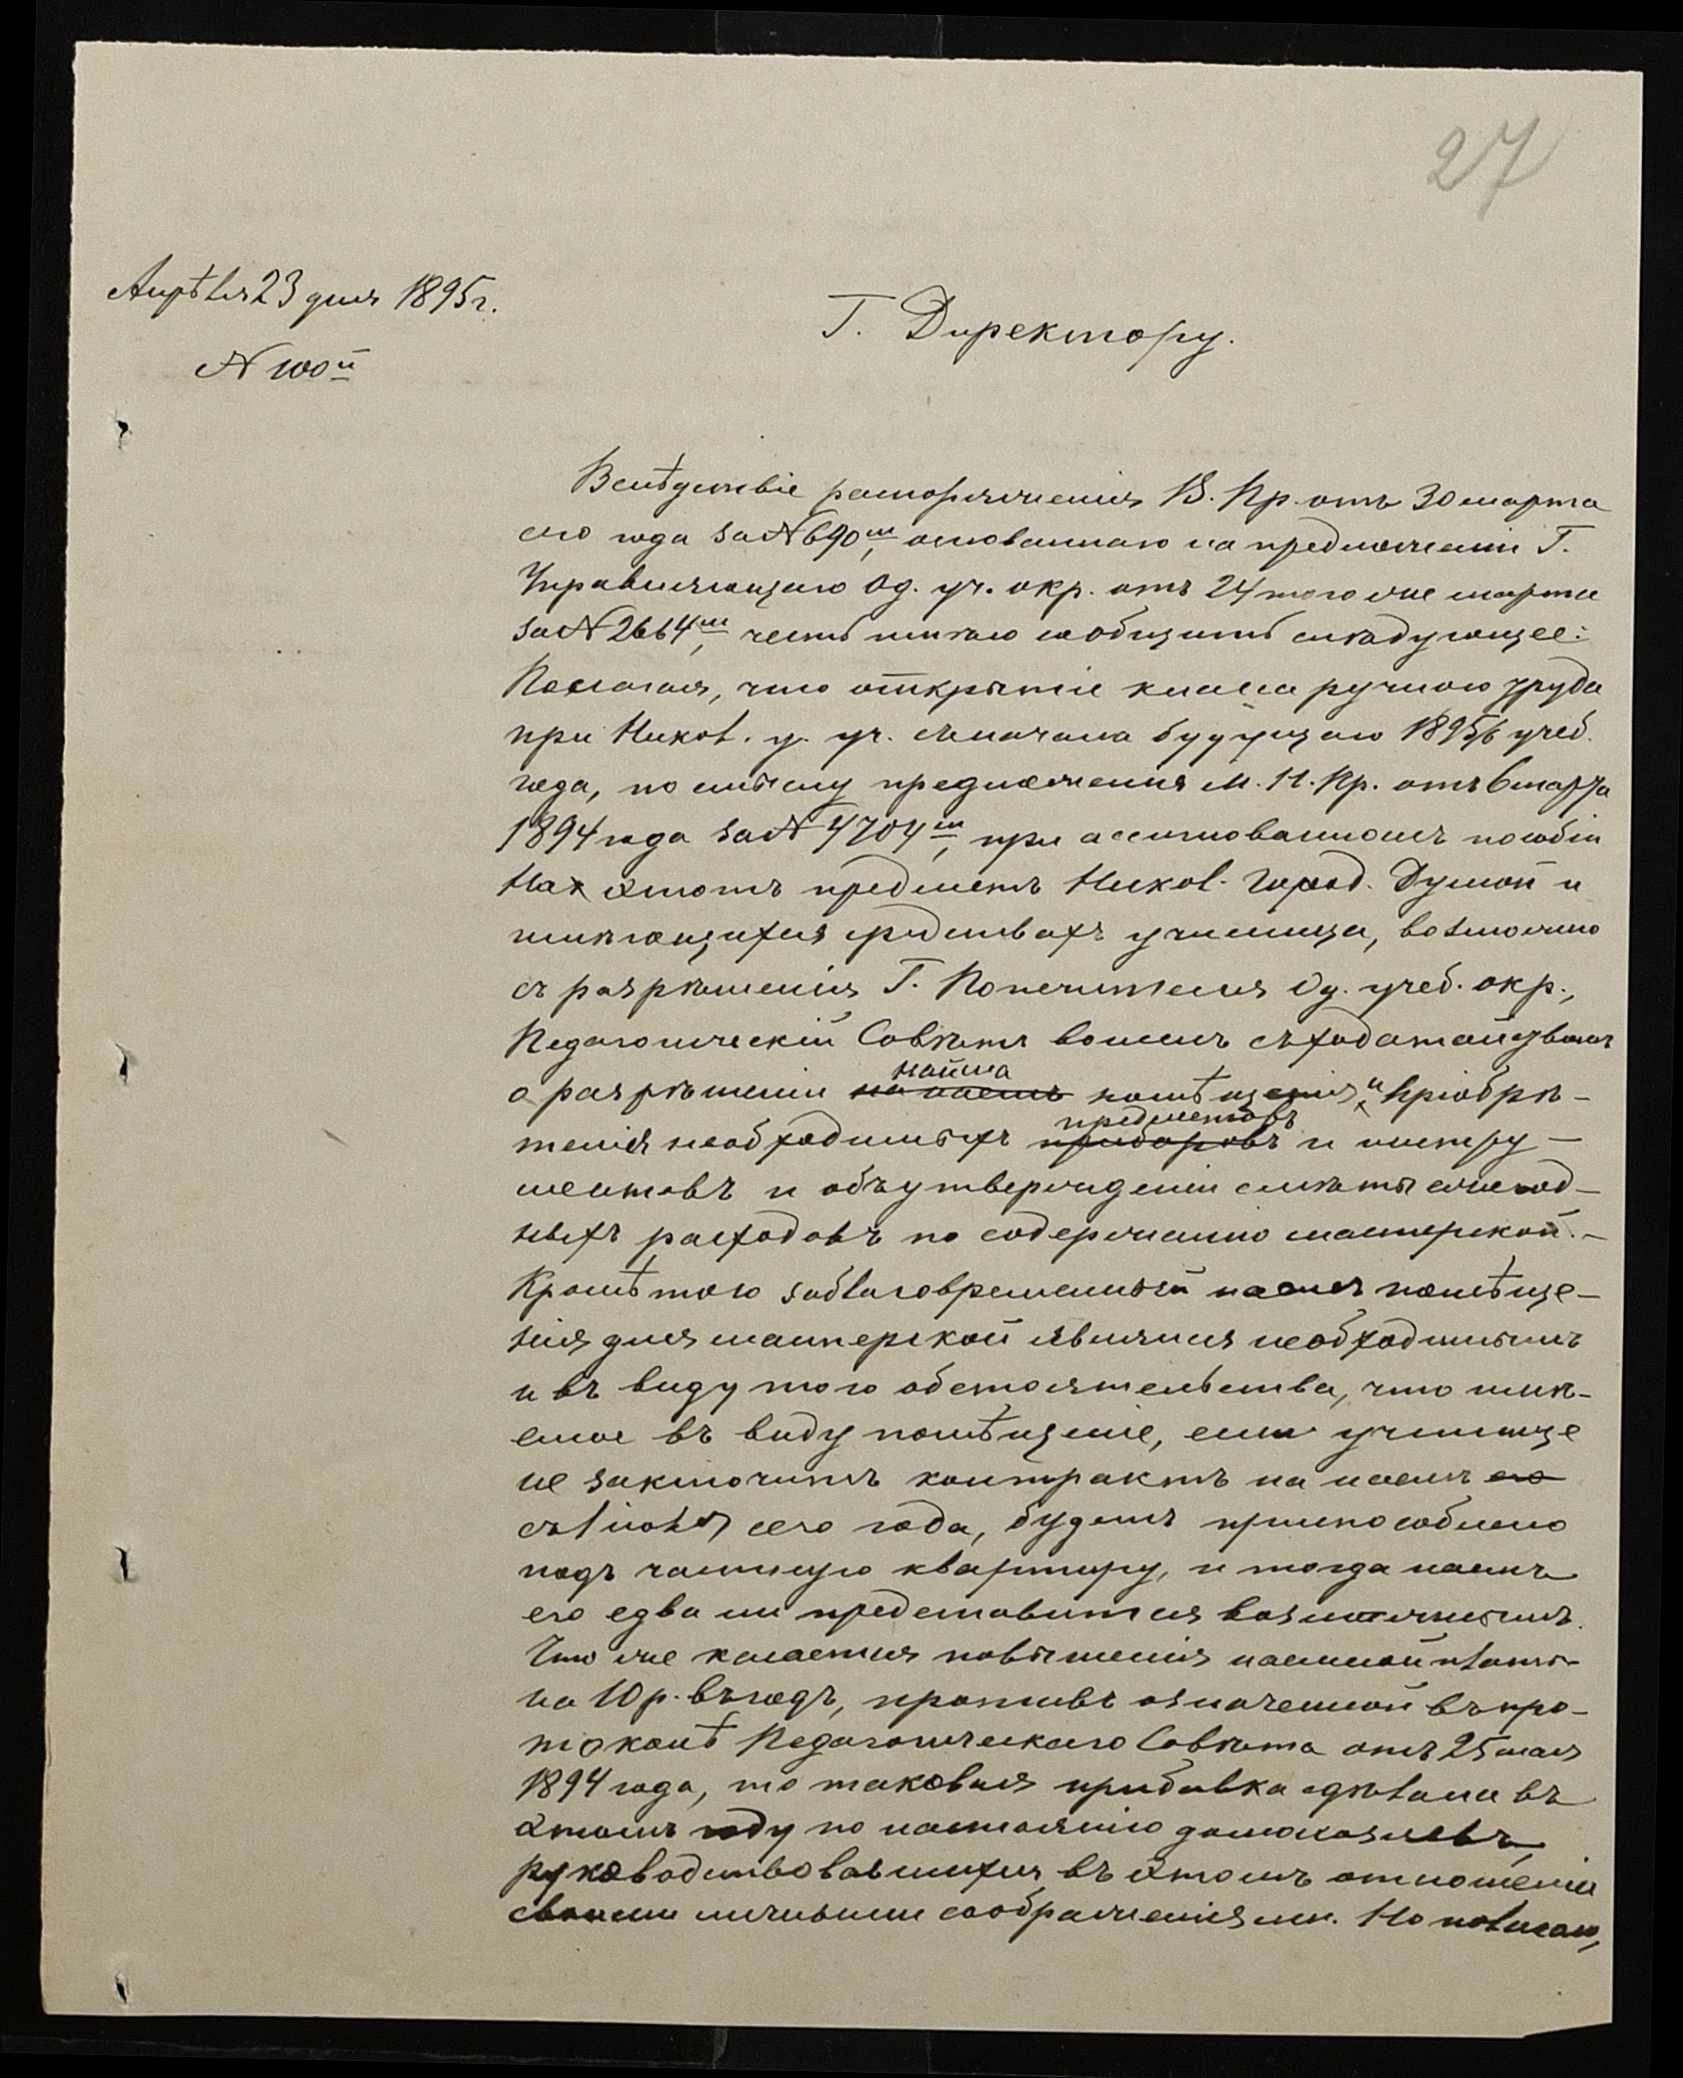 27
Апрѣля 23 дня 1895 г.
№ 100й
Г. Директору.
Вслѣдствіе распоряженія В. Пр. отъ 30 марта
сего года за № 690мъ, основаннаго на предложеніи Г.
Управляющаго Од. уч. окр. отъ 24 того же марта
за № 2664мъ, честь имѣю сообщить слѣдующее:
Полагая, что открытіе класса ручного труда
при Никол. у. уч. съ начала будущаго 1895/6 учеб.
года, по смыслу предложенія М. Н. Пр. отъ 6 марта
1894 года за № 4704мъ, при ассигнованномъ пособіи
на этотъ предметъ Никол. Город. Думой и
имѣющихся средствахъ училища, возможно
съ разрѣшенія Г. Попечителя Од. учеб. окр.,
Педагогическій Совѣтъ вошелъ съ ходатайствомъ
найма
о разрѣшеніи на наемъ помѣщенія и пріобрѣ-
предметовъ
тенія необходимыхъ приборовъ и инстру-
ментовъ и объ утвержденіи смѣты ежегод-
ныхъ расходовъ по содержанію мастерской.-
Кромѣ того заблаговременный наемъ помѣще-
нія для мастерской являлся необходимымъ
и въ виду того обстоятельства, что имѣ-
емое въ виду помѣщеніе, если училище
не заключитъ контрактъ на наемъ его
съ 1 іюля сего года, будетъ приспособлено
подъ частную квартиру, и тогда наемъ
его едва ли представится возможнымъ.
Что же касается повышенія наемной платы
на 10 р. въ годъ, противъ означенной въ про-
токолѣ Педагогическаго Совѣта отъ 25 мая
1894 года, то таковая прибавка сдѣлана въ
этомъ году по настоянію домохозяевъ,
руководствовавшихся въ этомъ отношеніи
своими личными соображеніями. Но полагаю,